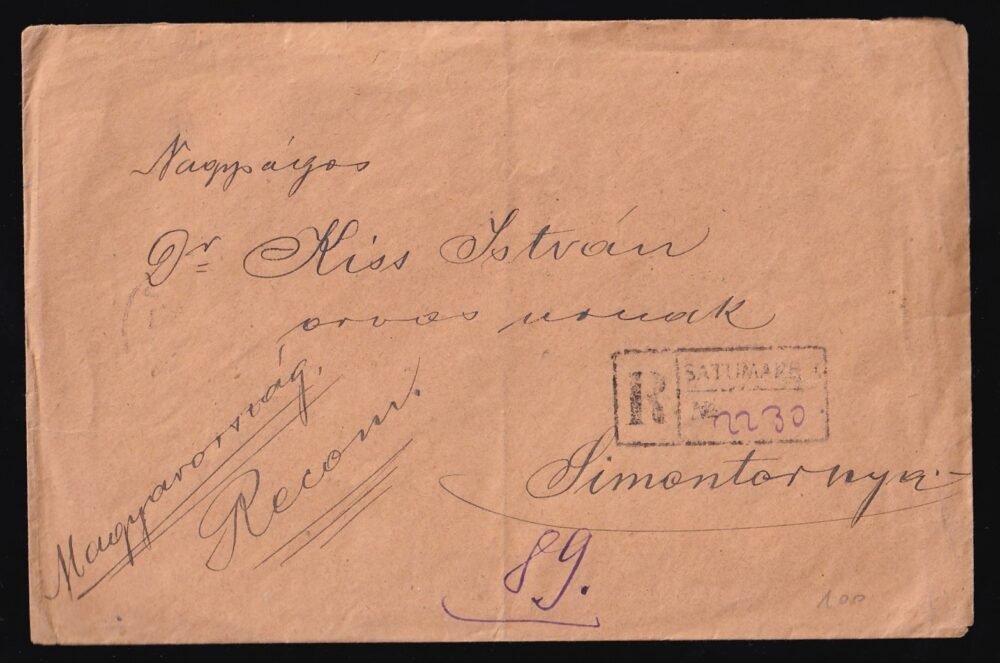 Nagyságos
Dr Kiss István
orvos urnak
Magyarország.
Recom.
R SATUMARE 1
No 2230.
Simontornya.
89.
100